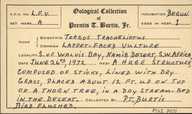 No. L.F.V. Oological Collection of Permit No.
Set Mark A Prentis T. Burtis, Jr. Eggs in Set 1
Torgus Tracheliotus
Lappet-Faced Vulture
S. of Walvis Bay, Namib Desert, S.W. Africa
June 26th, 1972 A Huge Structure
Composed of Sticks, Lined with Dry
Grass, Placed about 12 ft. up on top
of a Thorn Tree, in a Dry Stream Bed
in the Desert. Collected By P.T. Burtis
Bird Flushed